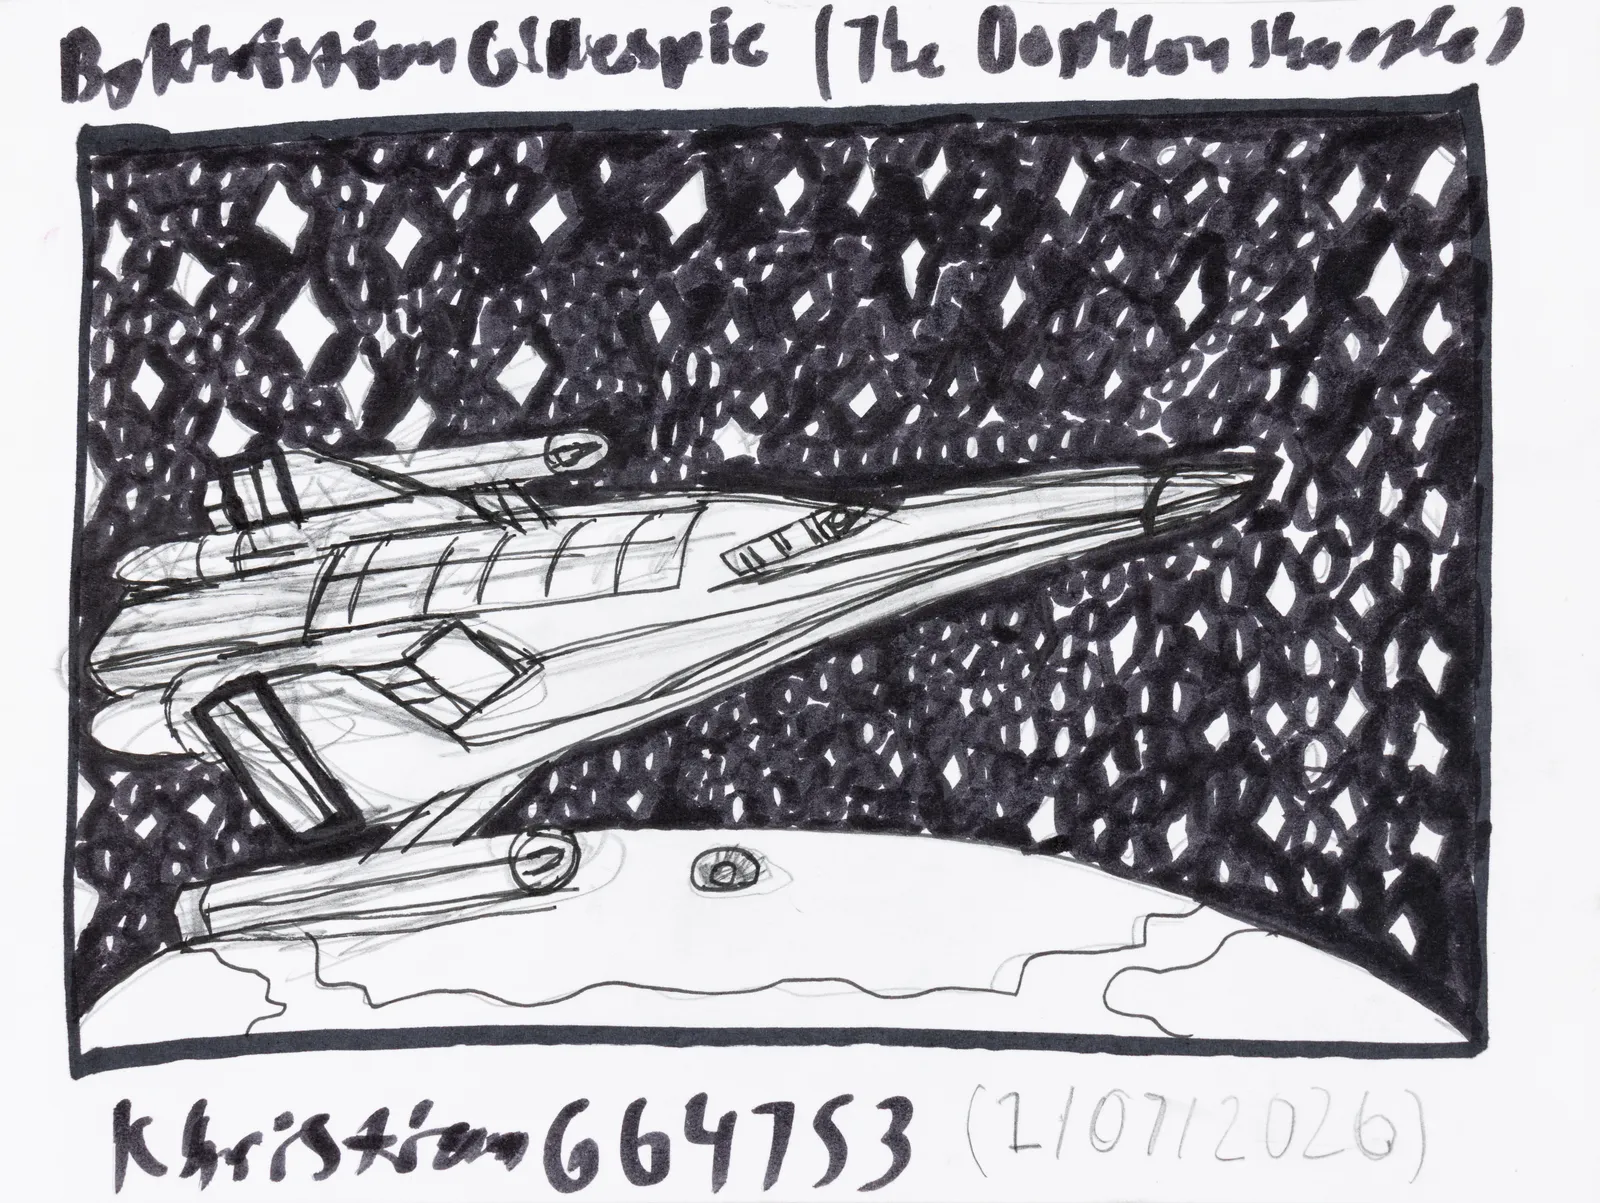 By Khristian Gillespie (The Shuttle)
Khristian664753 (1/07/2026)